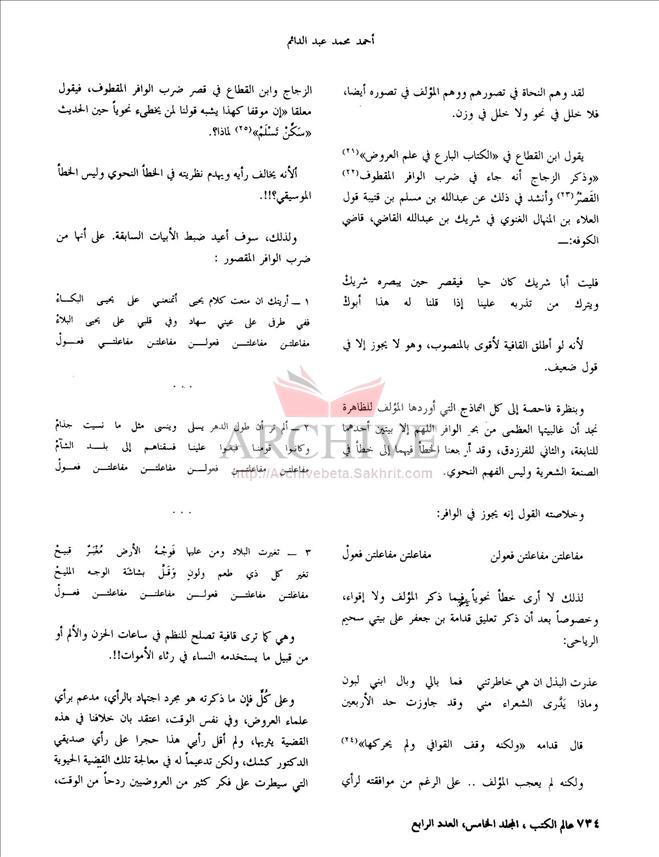 أحمد محمد عبد الدائم
لقد وهم النحاة في تصورهم ووهم المؤلف في تصوره أيضا،
فلا خلل في نحو ولا خلل في وزن.
يقول ابن القطاع في «الكتاب البارع في علم العروض»(٢١)
«وذكر الزجاج أنه جاء في ضرب الوافر المقطوف(٢٢)
القَصْرُ(٢٣) وأنشد في ذلك عن عبدالله بن مسلم بن قتيبة قول
العلاء بن المنهال الغنوي في شريك بن عبدالله القاضي، قاضي
الكوفه:ــ
فليت أبا شريك كان حيا فيقصر حين يبصره شريكْ
ويترك من تذربه علينا إذا قلنا له هذا أبوكْ
لأنه لو أطلق القافية لأقوى بالمنصوب، وهو لا يجوز إلا في
قول ضعيف.
وبنظرة فاحصة إلى كل النماذج التي أوردها المؤلف للظاهرة
نجد أن غالبيتها العظمى من بحر الوافر اللهم إلا بيتين أحدهما
للنابغة، والثاني للفرزدق، وقد أرجعنا الخطأ فيهما إلى خطأ في
الصنعة الشعرية وليس الفهم النحوي.
وخلاصته القول إنه يجوز في الوافر:
مفاعلتن مفاعلتن فعولن مفاعلتن مفاعلتن فعولْ
لذلك لا أرى خطأ نحوياً فيما ذكر المؤلف ولا إقواء،
وخصوصاً بعد أن ذكر تعليق قدامة بن جعفر على بيتي سحيم
الرياحى:
عذرت البذل ان هي خاطرتني فما بالي وبال ابني لبون
وماذا يَدَّرى الشعراء مني وقد جاوزت حد الأربعين
قال قدامه «ولكنه وقف القوافي ولم يحركها»(٢٤)
ولكنه لم يعجب المؤلف .. على الرغم من موافقته لرأي
الزجاج وابن القطاع في قصر ضرب الوافر المقطوف، فيقول
معلقا «إن موقفا كهذا يشبه قولنا لمن يخطىء نحوياً حين الحديث
«سَكِّنْ تَسْلَمْ»(٢٥) لماذا؟.
ألأنه يخالف رأيه ويهدم نظريته في الخطأ النحوي وليس الخطأ
الموسيقي؟!!.
ولذلك، سوف أعيد ضبط الأبيات السابقة. على أنها من
ضرب الوافر المقصور :
١ ــ أريتك ان منعت كلام يحيى أتمنعني على يحيى البكاءْ
ففي طرفى على عيني سهاد وفي قلبي على يحيى البلاءْ
مفاعلتن مفاعلتن فعولــن مفاعلتـن مفاعلتـي فعـولْ
. . .
ــ ألم تر أن طول الدهر يسلى وينسى مثل ما نسيت جذامْ
وكانوا قومنا فبغوا علينا فسقناهم إلى بلــد الشآمْ
مفاعلتـن مفاعلتـن فعولــن مفاعلتـن مفاعلتـن فعــولْ
. . .
٣ ــ تغيرت البلاد ومن عليها فَوَجْـهُ الأرض مُغْبَـرّ قبيـحْ
تغير كل ذي طعم ولونٍ وَقَـلَّ بشاشة الوجـه المليـحْ
مفاعلتـن مفاعلتـن فعولــن مفاعلتـن مفاعلتـن فعــولْ
وهي كما ترى قافية تصلح للنظم في ساعات الحزن والألم أو
من قبيل ما يستخدمه النساء في رثاء الأموات!!.
وعلى كُلٍّ فإن ما ذكرته هو مجرد اجتهاد بالرأي، مدعم برأي
علماء العروض، وفي نفس الوقت، اعتقد بان خلافنا في هذه
القضية يثريها، ولم أقل رأيي هذا حجرا على رأي صديقي
الدكتور كشك، ولكن تدعيماً له في معالجة تلك القضية الحيوية
التي سيطرت على فكر كثير من العروضيين ردحاً من الوقت،
ARCHIVE
http://Archivebeta.Sakhrit.com
٧٣٤ عالم الكتب ، المجلد الخامس، العدد الرابع